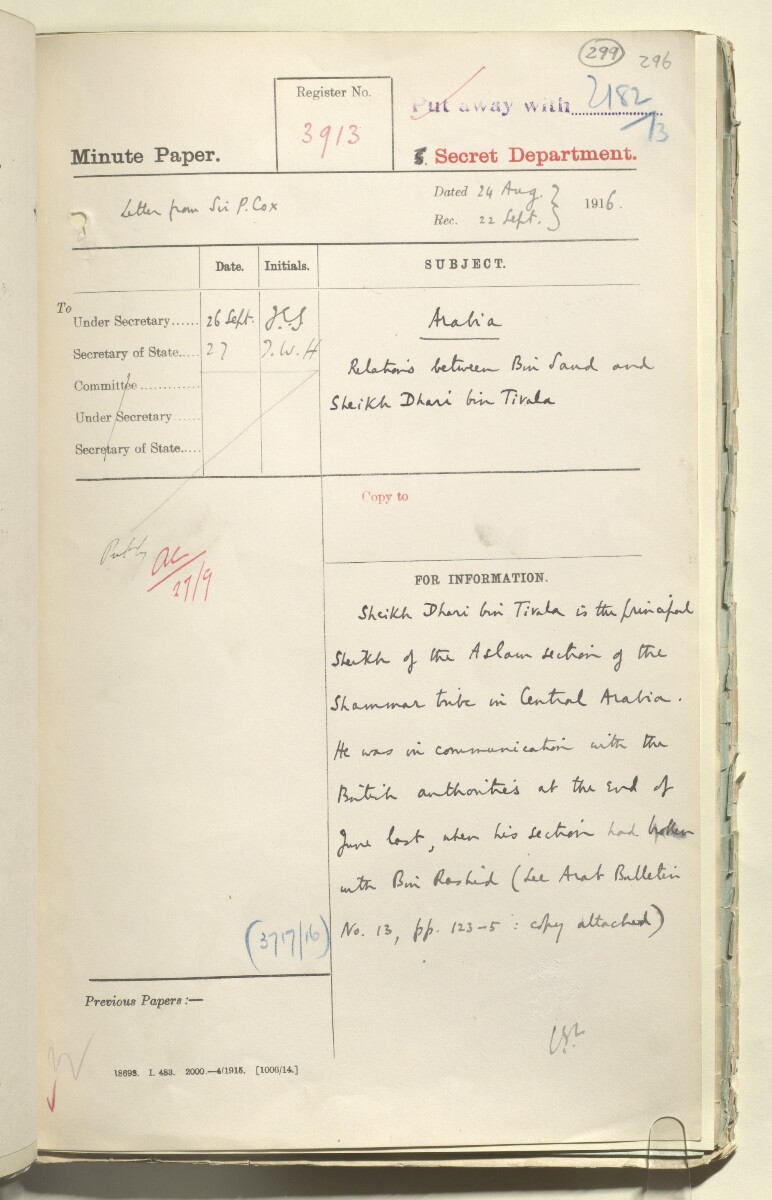 299 296
Register No.
3913
Put away with 2182/13
Minute Paper.
Secret Department.
Letter from Sir P. Cox
Dated 24 Aug. } 1916.
Rec. 22 Sept. }
Date. Initials.
SUBJECT.
To
Under Secretary...... 26 Sept.
Secretary of State..... 27 T.W.H
Committee .............
Under Secretary ......
Secretary of State.....
Arabia
Relations between Bin Saud and
Sheikh Dhari bin Tivala
Copy to
27/9
FOR INFORMATION.
Sheikh Dhari bin Tivala is the principal
Sheikh of the Aslam section of the
Shammar tribe in Central Arabia.
He was in communication with the
British authorities at the end of
June last, when his section had broken
with Bin Rashid (See Arab Bulletin
No. 13, pp. 123-5 : copy attached)
(3717/16)
Previous Papers :—
18698. I. 483. 2000.—4/1915. [1006/14.]